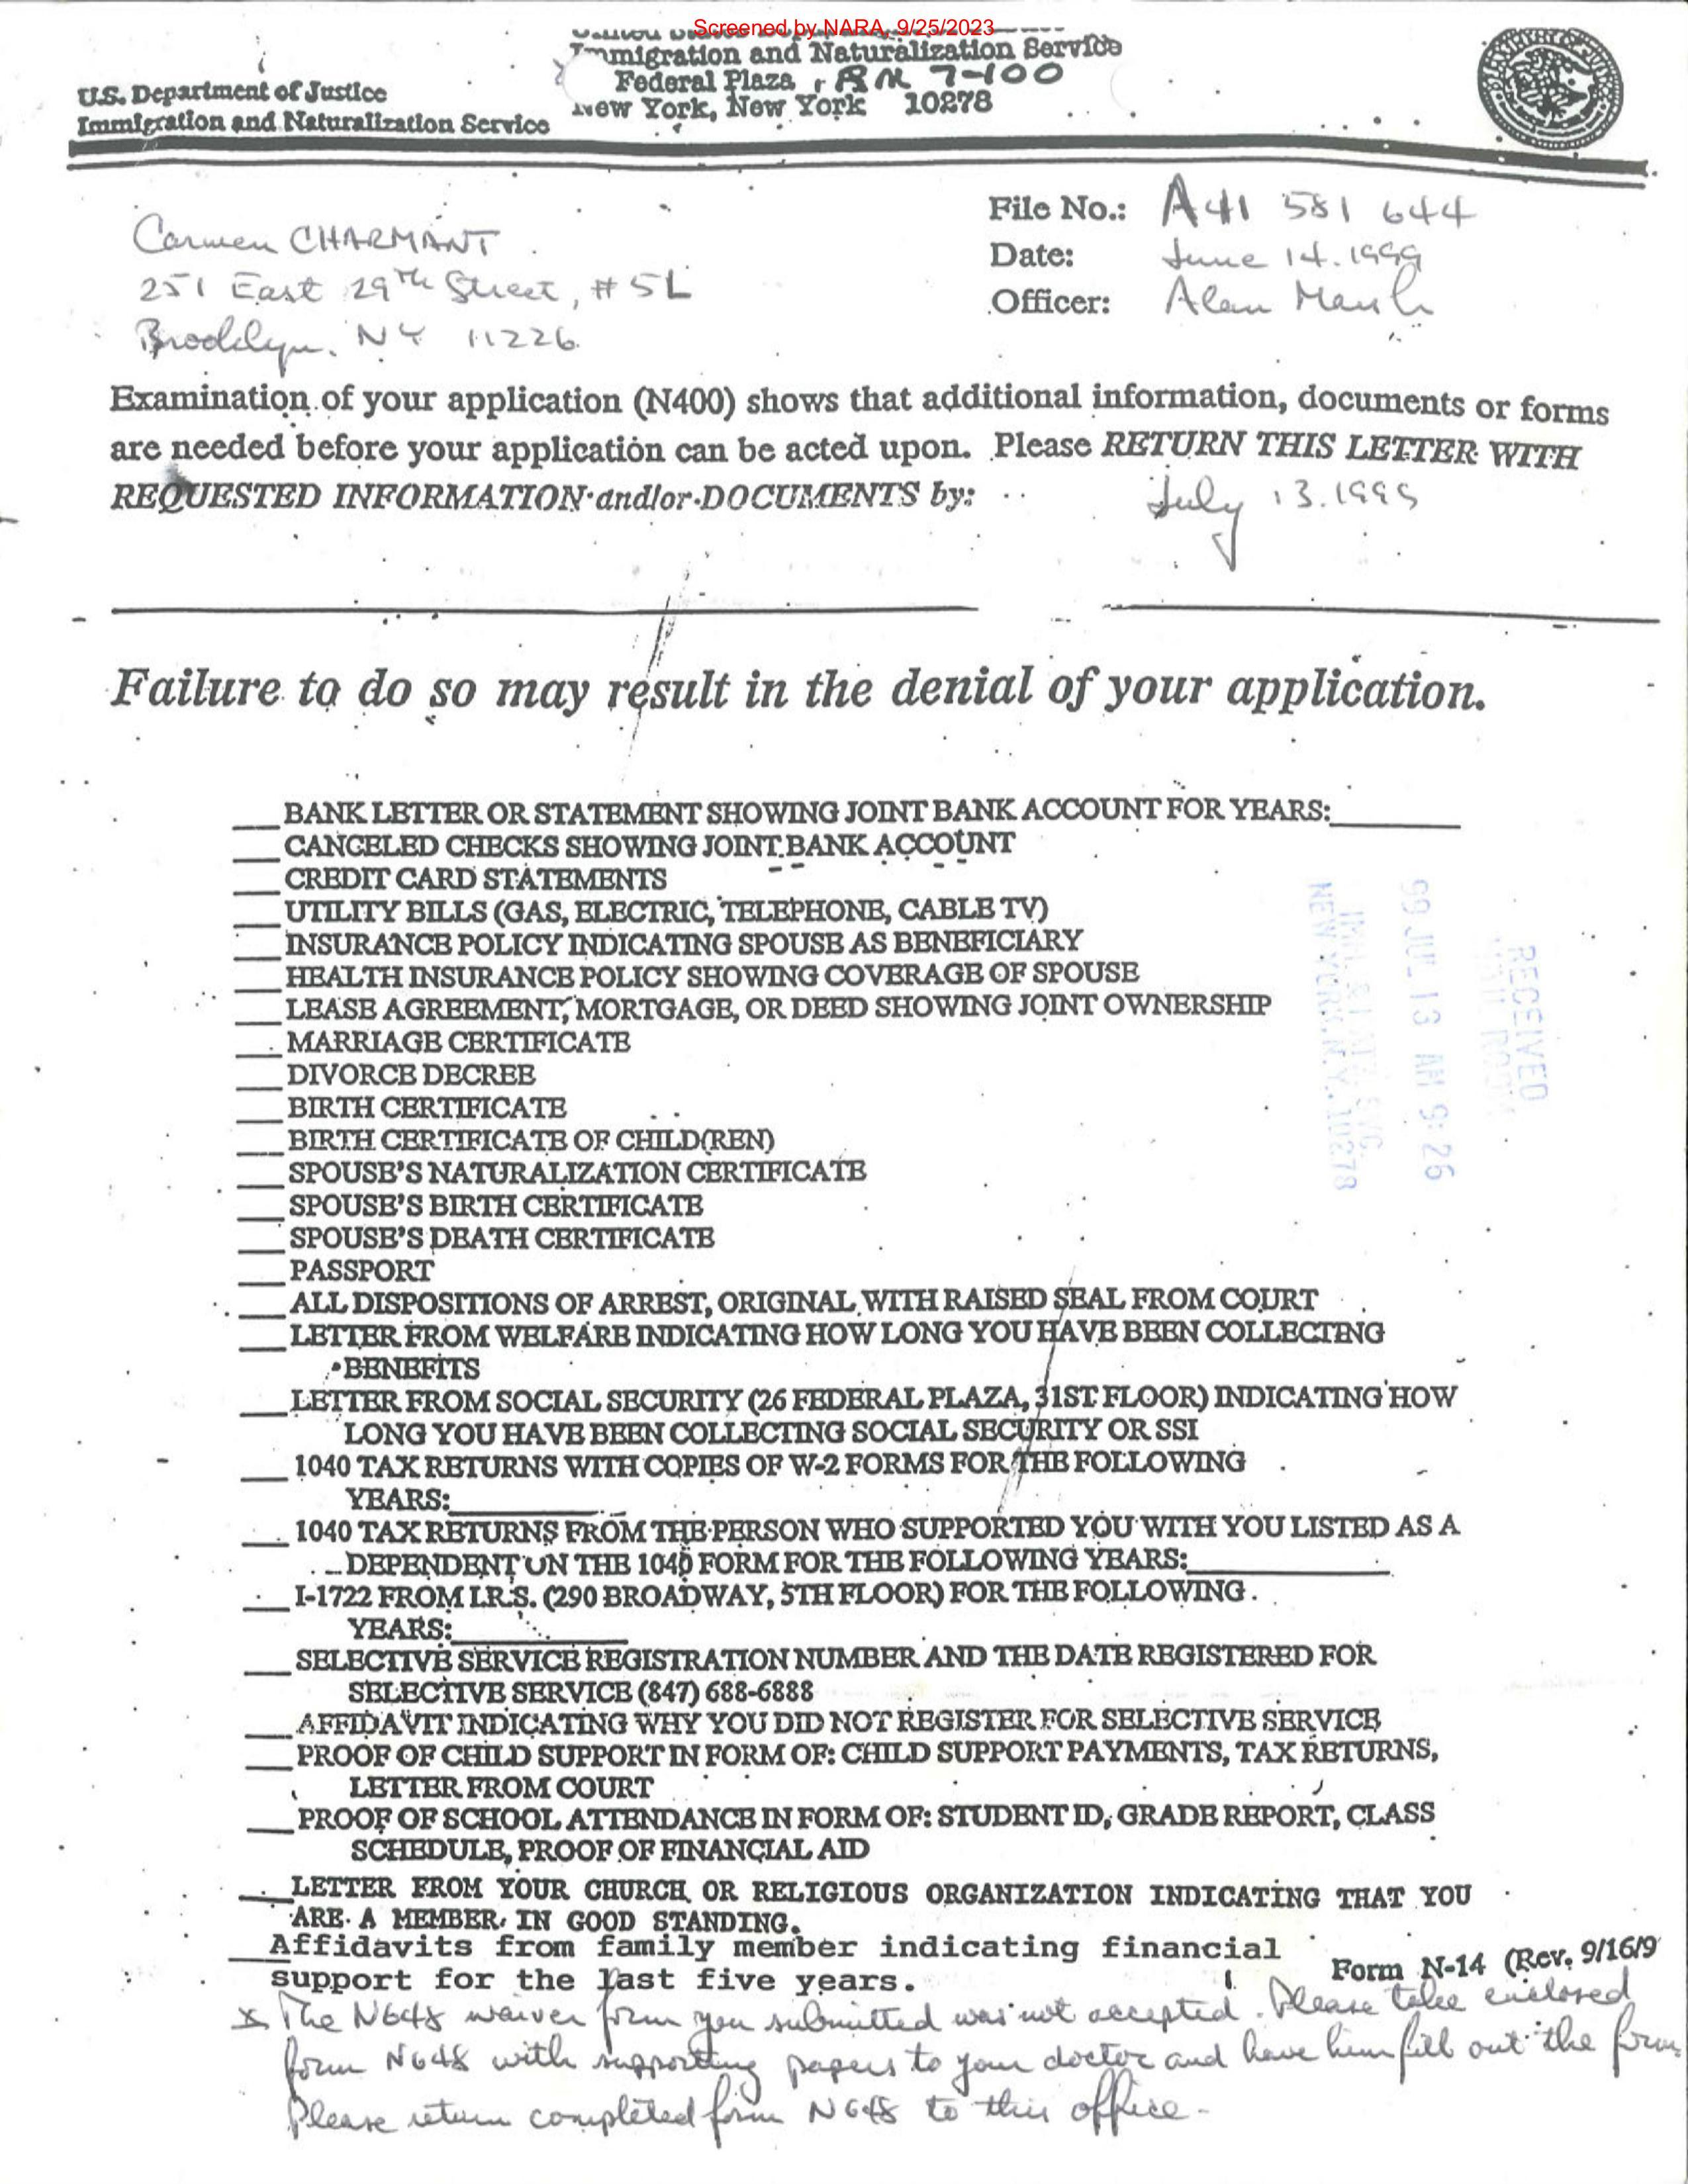 Screened by NARA, 9/25/2023
Immigration and Naturalization Service
Federal Plaza, RM 7-100
New York, New York 10278
U.S. Department of Justice
Immigration and Naturalization Service
Carmen CHARMANT
251 East 29th Street, #5L
Brooklyn, NY 11226
File No.: A41 581 644
Date: June 14.1999
Officer: Alan
Examination of your application (N400) shows that additional information, documents or forms
are needed before your application can be acted upon. Please RETURN THIS LETTER WITH
REQUESTED INFORMATION and/or DOCUMENTS by: July 13.1999
Failure to do so may result in the denial of your application.
___BANK LETTER OR STATEMENT SHOWING JOINT BANK ACCOUNT FOR YEARS:________
___CANCELED CHECKS SHOWING JOINT BANK ACCOUNT
___CREDIT CARD STATEMENTS
___UTILITY BILLS (GAS, ELECTRIC, TELEPHONE, CABLE TV)
___INSURANCE POLICY INDICATING SPOUSE AS BENEFICIARY
___HEALTH INSURANCE POLICY SHOWING COVERAGE OF SPOUSE
___LEASE AGREEMENT, MORTGAGE, OR DEED SHOWING JOINT OWNERSHIP
___MARRIAGE CERTIFICATE
___DIVORCE DECREE
___BIRTH CERTIFICATE
___BIRTH CERTIFICATE OF CHILD(REN)
___SPOUSE'S NATURALIZATION CERTIFICATE
___SPOUSE'S BIRTH CERTIFICATE
___SPOUSE'S DEATH CERTIFICATE
___PASSPORT
___ALL DISPOSITIONS OF ARREST, ORIGINAL WITH RAISED SEAL FROM COURT
___LETTER FROM WELFARE INDICATING HOW LONG YOU HAVE BEEN COLLECTING
BENEFITS
___LETTER FROM SOCIAL SECURITY (26 FEDERAL PLAZA, 31ST FLOOR) INDICATING HOW
LONG YOU HAVE BEEN COLLECTING SOCIAL SECURITY OR SSI
___1040 TAX RETURNS WITH COPIES OF W-2 FORMS FOR THE FOLLOWING
YEARS:________
___1040 TAX RETURNS FROM THE PERSON WHO SUPPORTED YOU WITH YOU LISTED AS A
DEPENDENT ON THE 1040 FORM FOR THE FOLLOWING YEARS:________
___I-1722 FROM I.R.S. (290 BROADWAY, 5TH FLOOR) FOR THE FOLLOWING
YEARS:________
___SELECTIVE SERVICE REGISTRATION NUMBER AND THE DATE REGISTERED FOR
SELECTIVE SERVICE (847) 688-6888
___AFFIDAVIT INDICATING WHY YOU DID NOT REGISTER FOR SELECTIVE SERVICE
___PROOF OF CHILD SUPPORT IN FORM OF: CHILD SUPPORT PAYMENTS, TAX RETURNS,
LETTER FROM COURT
___PROOF OF SCHOOL ATTENDANCE IN FORM OF: STUDENT ID, GRADE REPORT, CLASS
SCHEDULE, PROOF OF FINANCIAL AID
___LETTER FROM YOUR CHURCH OR RELIGIOUS ORGANIZATION INDICATING THAT YOU
ARE A MEMBER IN GOOD STANDING.
___Affidavits from family member indicating financial
support for the last five years.
Form N-14 (Rev. 9/16/9
x The N648 waiver form you submitted was not accepted. Please take enclosed
form N648 with supporting papers to your doctor and have him fill out the form
Please return completed form N648 to this office.
RECEIVED
99 JUL 13 AM 9:26
NEW YORK, N.Y. 10278